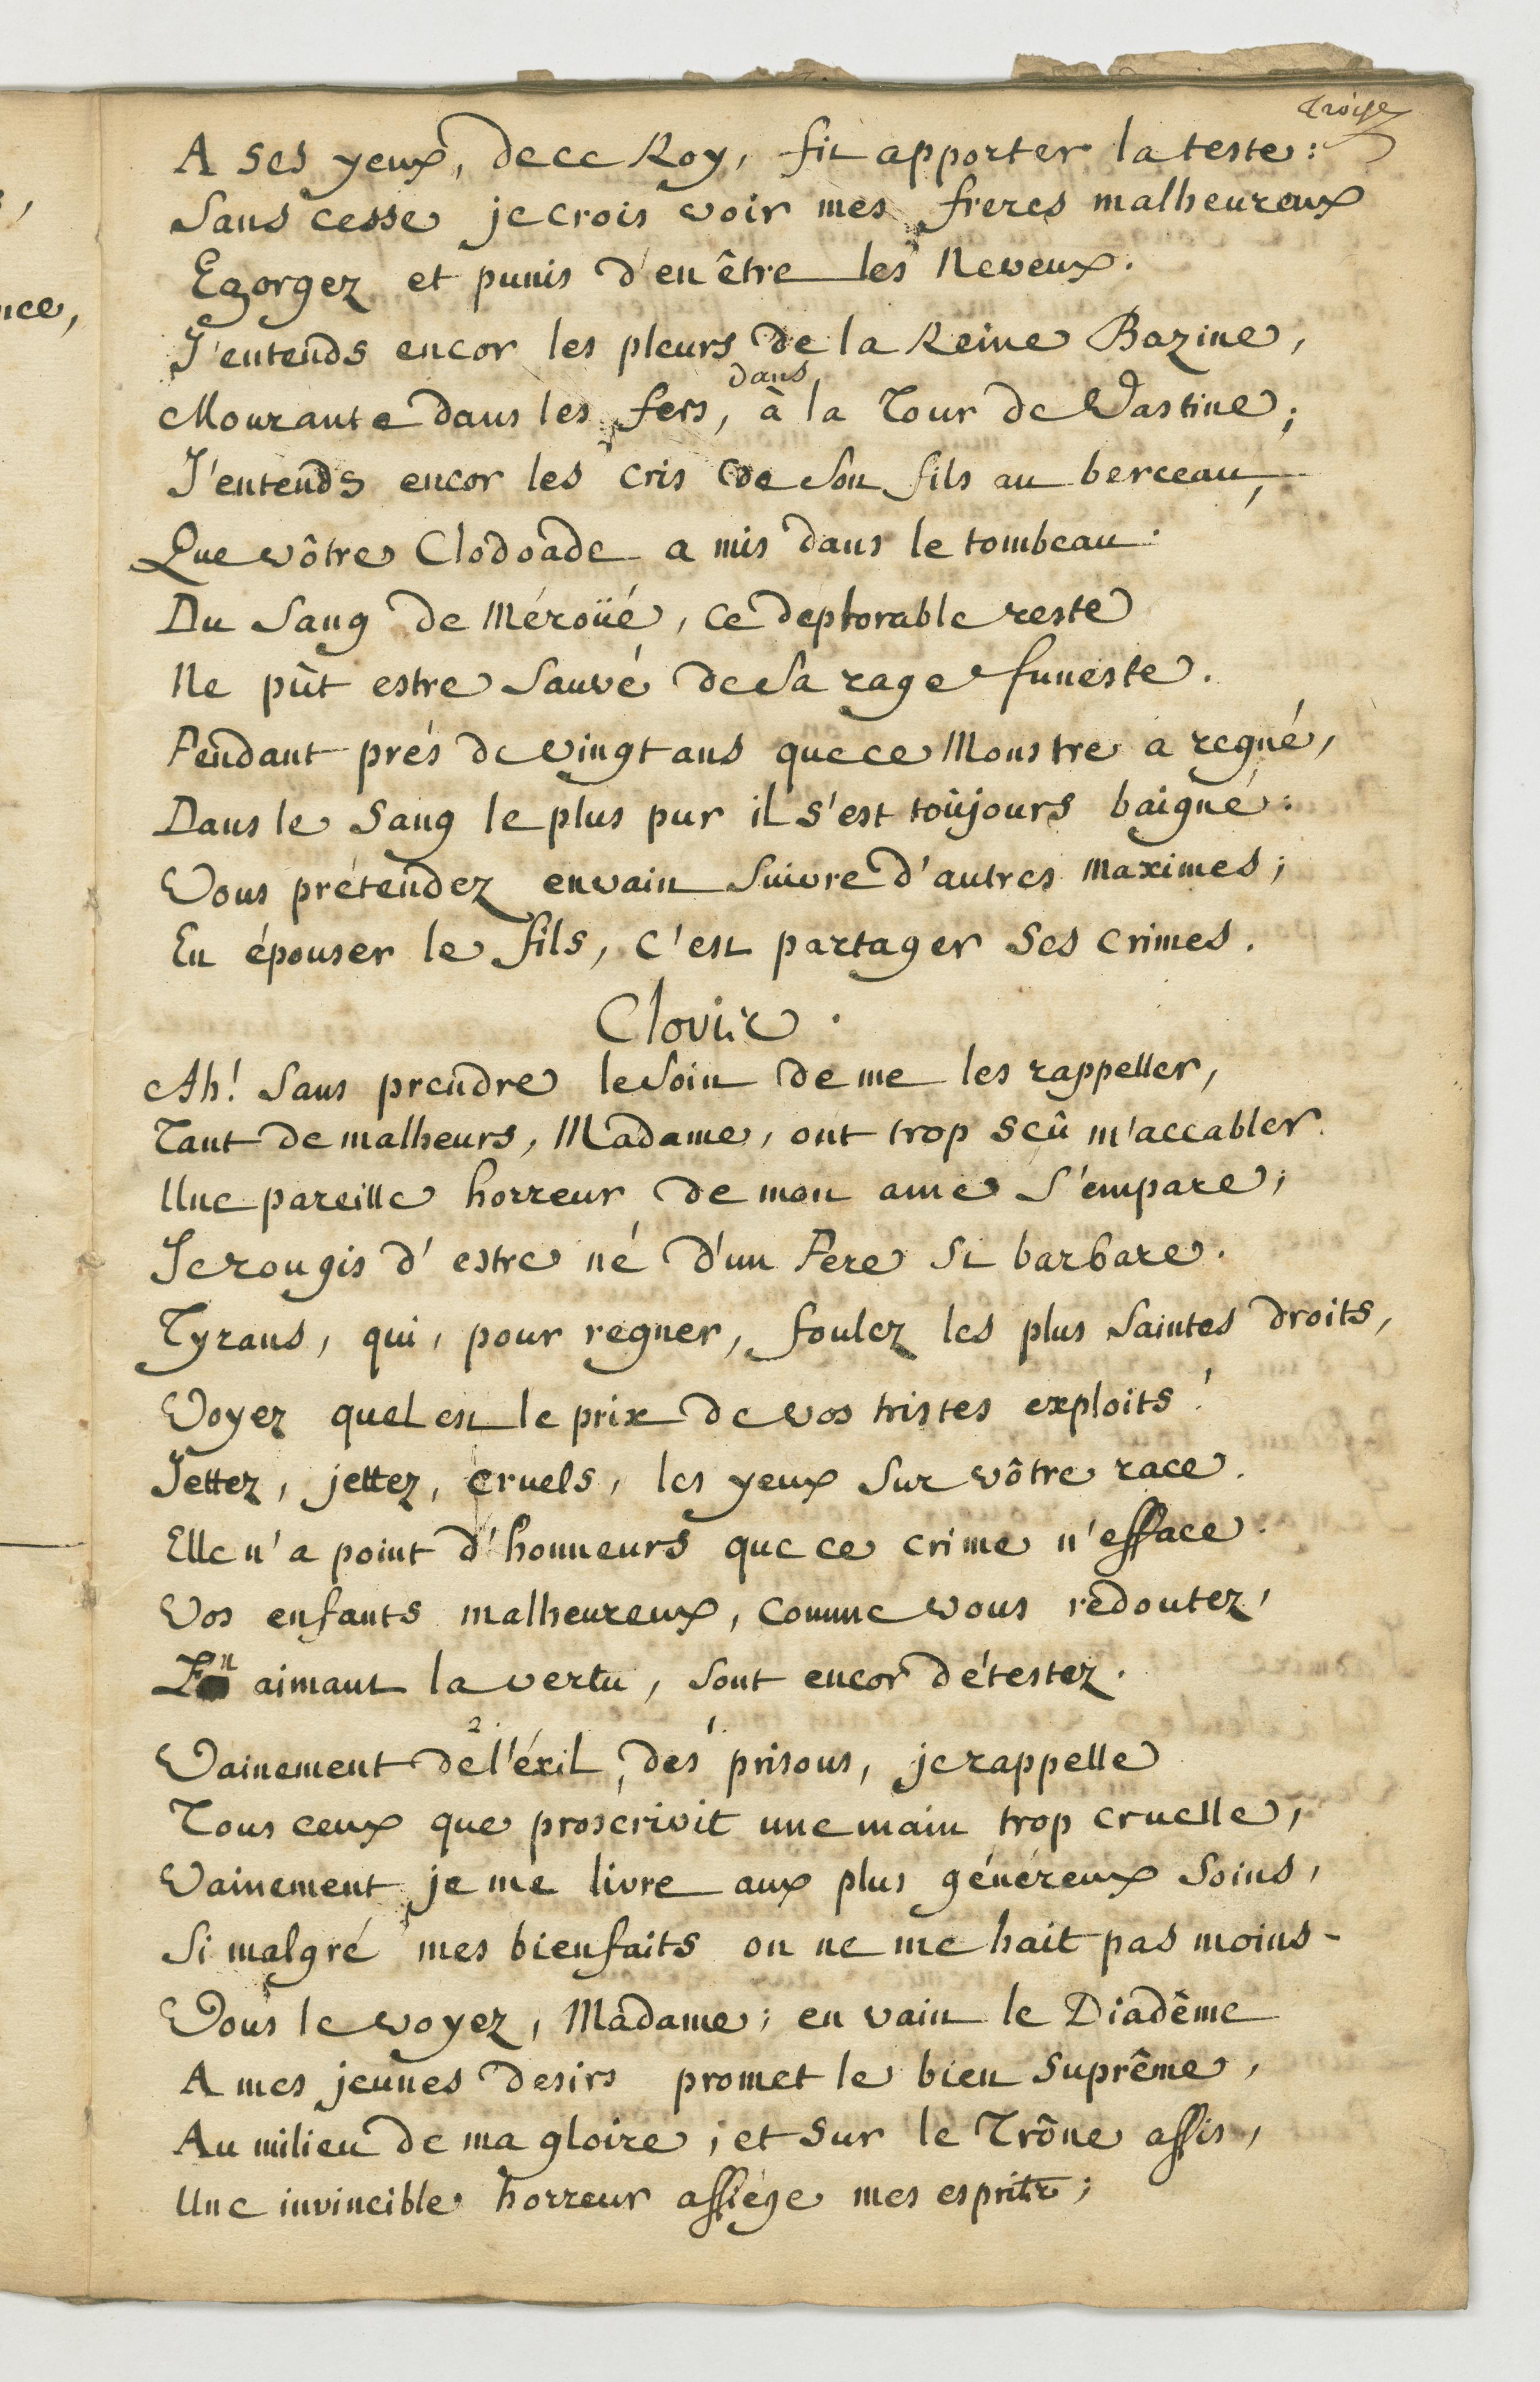 troise
A ses yeux, de ce Roy, fit apporter la teste:
Sans cesse je crois voir mes freres malheureux
Egorgez et punis d'en être les Neveux.
J'entends encor les pleurs de la Reine Bazine,
dans
Mourante dans les fers, à la Tour de Vastine;
J'entends encor les cris de son fils au berceau,
Que vôtre Clodoade a mis dans le tombeau.
Du Sang de Méroüé, ce deplorable reste
Ne pût estre sauvé de sa rage funeste.
Pendant prés de vingt ans que ce Monstre a regné,
Dans le Sang le plus pur il s'est toûjours baigné:
Vous prétendez envain suivre d'autres maximes;
En épouser le fils, c'est partager ses crimes.
Clovis.
Ah! sans prendre le soin de me les rappeller,
Tant de malheurs, Madame, ont trop sçû m'accabler.
Une pareille horreur de mon ame s'empare;
Je rougis d'estre né d'un Pere si barbare.
Tyrans, qui, pour regner, foulez les plus saintes droits,
Voyez quel est le prix de vos tristes exploits!
Jettez, jettez, cruels, les yeux sur vôtre race.
Elle n'a point d'honneurs que ce crime n'efface.
Vos enfants malheureux, comme vous redoutez,
En aimant la vertu, sont encor détestez.
2. 1.
Vainement de l'éxil, des prisons, je rappelle
Tous ceux que proscrivit une main trop cruelle,
Vainement je me livre aux plus généreux soins,
Si malgré mes bienfaits on ne me hait pas moins-
Vous le voyez, Madame; en vain le Diadême
A mes jeunes desirs promet le bien suprême,
Au milieu de ma gloire, et sur le Trône assis,
Une invincible horreur assiége mes esprits;